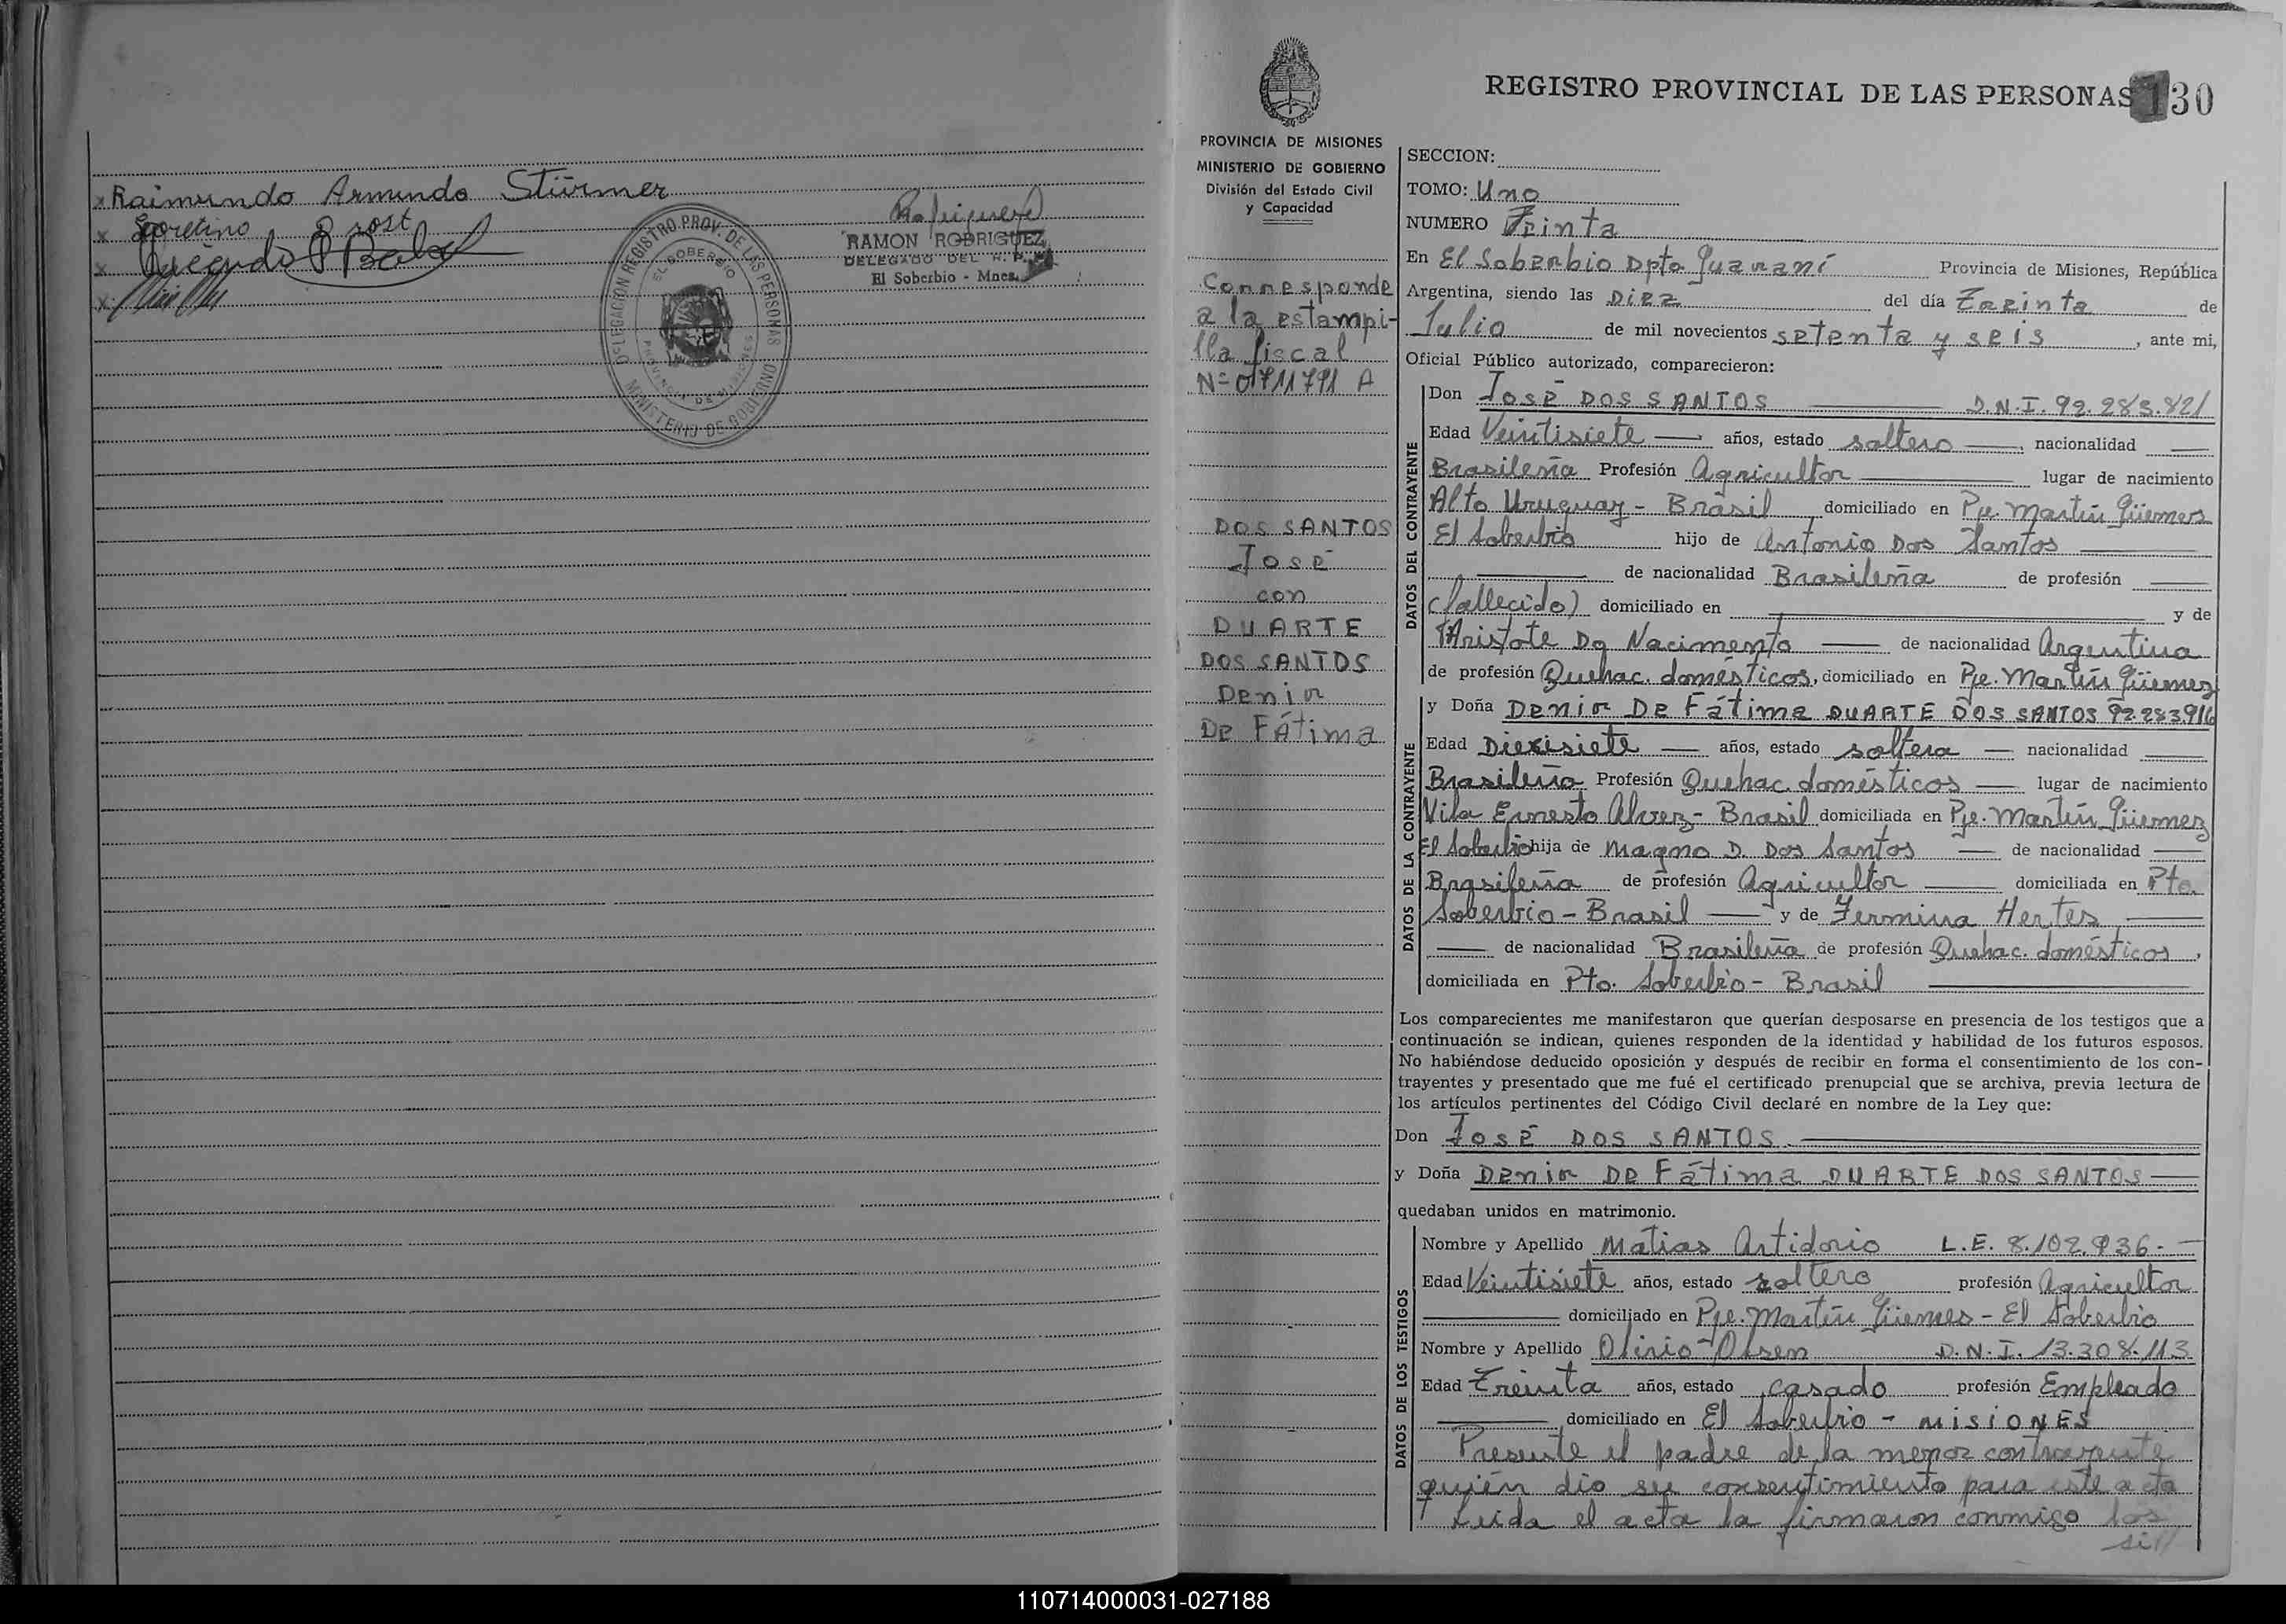 x Raimundo Armindo Stürmer
x Loretino Prost
x
x
RAMON RODRIGUEZ
DELEGADO DEL R. P.
El Soberbio - Mnes.
DELEGACION REGISTRO PROV. DE LAS PERSONAS
EL SOBERBIO
PROVINCIA DE MISIONES
MINISTERIO DE GOBIERNO
REGISTRO PROVINCIAL DE LAS PERSONAS 130
PROVINCIA DE MISIONES
MINISTERIO DE GOBIERNO
División del Estado Civil
y Capacidad
Corresponde
a la estampi-
lla fiscal
Nº 0711791 A
DOS SANTOS
José
con
DUARTE
DOS SANTOS
Denir
De Fátima
SECCION:
TOMO: Uno
NUMERO Treinta
En El Soberbio Dpto Guaraní Provincia de Misiones, República
Argentina, siendo las Diez del día Treinta de
Julio de mil novecientos setenta y seis, ante mi,
Oficial Público autorizado, comparecieron:
DATOS DEL CONTRAYENTE
Don José DOS SANTOS D.N.I. 92.283.821
Edad Veintisiete años, estado soltero, nacionalidad
Brasileña Profesión Agricultor lugar de nacimiento
Alto Uruguay - Brasil domiciliado en Pje. Martín Güemes
El Soberbio hijo de Antonio Dos Santos
de nacionalidad Brasileña de profesión
(fallecido) domiciliado en y de
Aristote Do Nacimento de nacionalidad Argentina
de profesión Quehac. domésticos, domiciliado en Pje. Martín Güemes
DATOS DE LA CONTRAYENTE
y Doña Denir De Fátima DUARTE DOS SANTOS 92.283.916
Edad Diecisiete años, estado soltera nacionalidad
Brasileña Profesión Quehac. domésticos lugar de nacimiento
Vila Ernesto Alvez - Brasil domiciliada en Pje. Martín Güemes
El Soberbio hija de Magno D. Dos Santos de nacionalidad
Brasileña de profesión Agricultor domiciliada en Pto.
Soberbio - Brasil y de Fermina Hertes
de nacionalidad Brasileña de profesión Quehac. domésticos,
domiciliada en Pto. Soberbio - Brasil
Los comparecientes me manifestaron que querían desposarse en presencia de los testigos que a
continuación se indican, quienes responden de la identidad y habilidad de los futuros esposos.
No habiéndose deducido oposición y después de recibir en forma el consentimiento de los con-
trayentes y presentado que me fué el certificado prenupcial que se archiva, previa lectura de
los artículos pertinentes del Código Civil declaré en nombre de la Ley que:
Don José DOS SANTOS
y Doña Denir De Fátima DUARTE DOS SANTOS
quedaban unidos en matrimonio.
DATOS DE LOS TESTIGOS
Nombre y Apellido Matias Antidorio L.E. 8.102.936.-
Edad Veintisiete años, estado soltero profesión Agricultor
domiciliado en Pje. Martín Güemes - El Soberbio
Nombre y Apellido Olirio Olsen D.N.I. 13.308.113
Edad Treinta años, estado casado profesión Empleado
domiciliado en El Soberbio - MISIONES
Presente el padre de la menor contrayente
quién dio su consentimiento para este acta
Leida el acta la firmaron conmigo los
si//
110714000031-027188